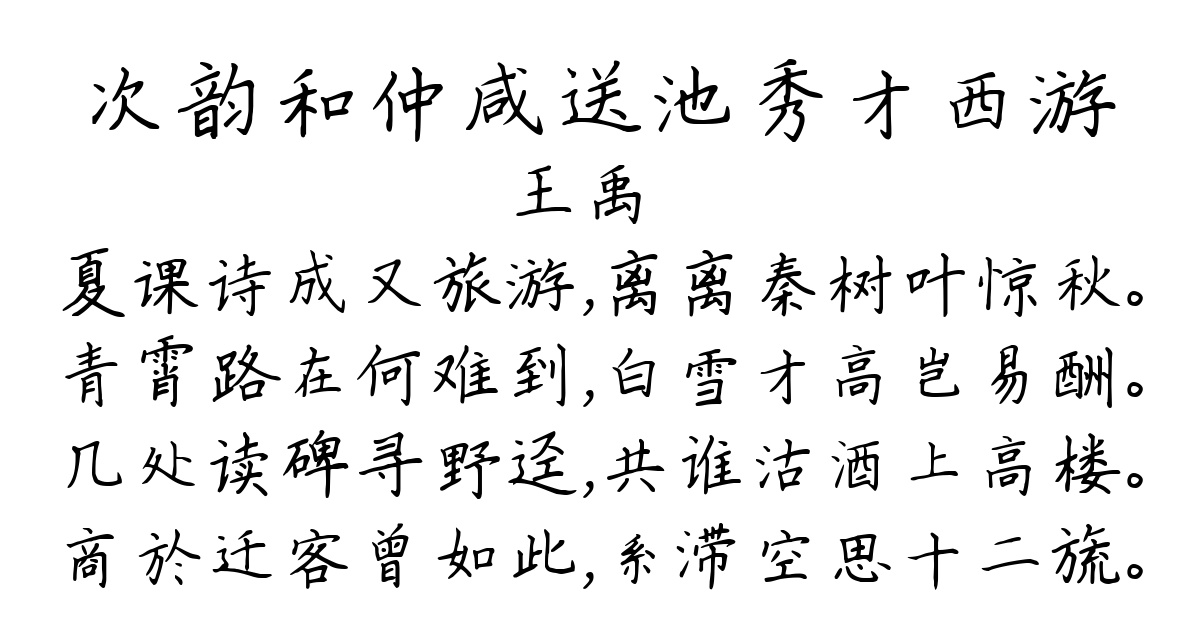 次韵和仲咸送池秀才西游
王禹
夏课诗成又旅游,离离秦树叶惊秋。
青霄路在何难到,白雪才高岂易酬。
几处读碑寻野迳,共谁沽酒上高楼。
商於迁客曾如此,系滞空思十二旒。